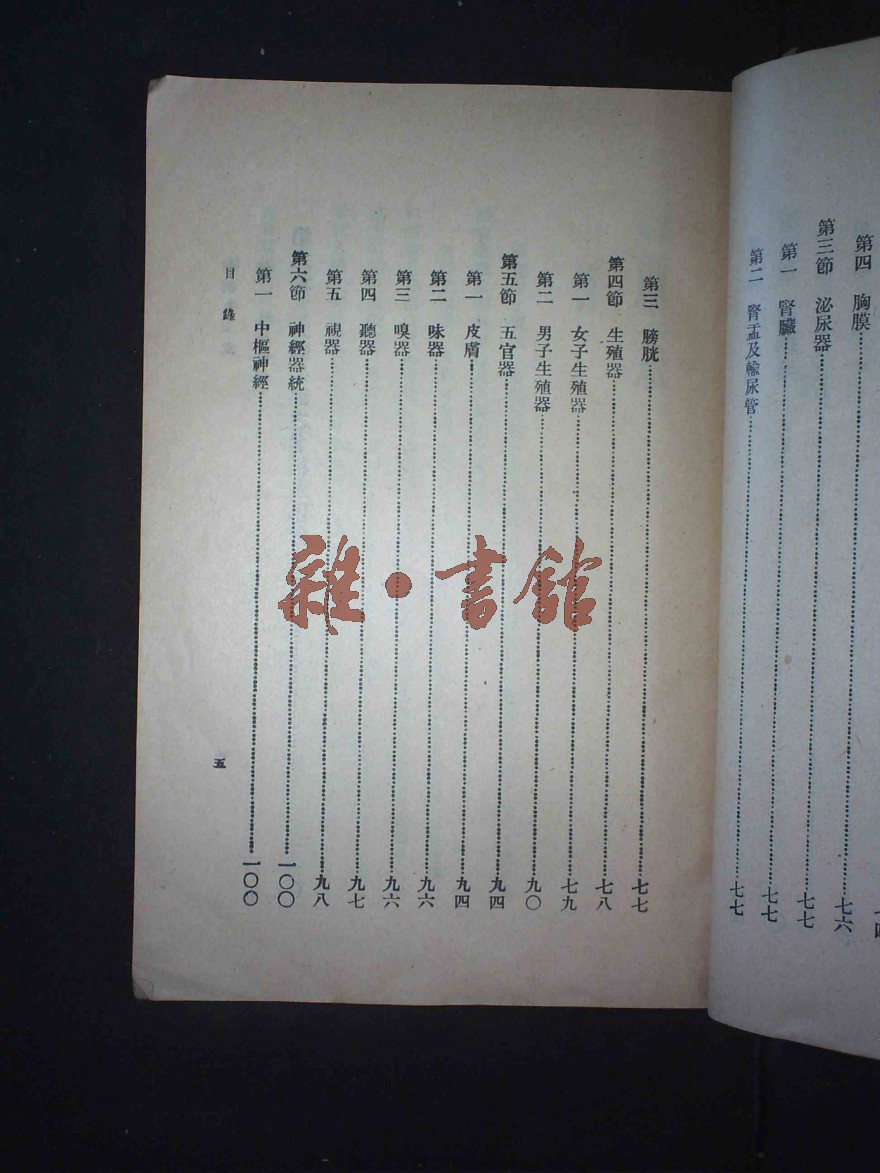 第四　胸膜……七六
第三節　泌尿器……七七
第一　腎臟……七七
第二　腎盂及輸尿管……七七
第三　膀胱……七七
第四節　生殖器……七八
第一　女子生殖器……七九
第二　男子生殖器……九〇
第五節　五官器……九四
第一　皮膚……九四
第二　味器……九六
第三　嗅器……九六
第四　聽器……九七
第五　視器……九八
第六節　神經器統……一〇〇
第一　中樞神經……一〇〇
目錄
五
雜・書館